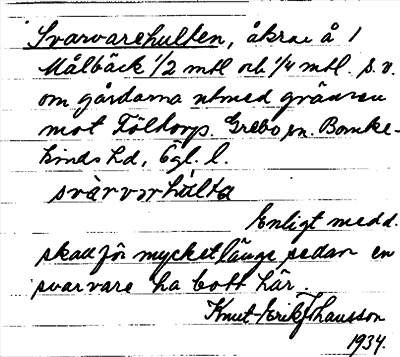 Svarvarehulten, åkrar å 1
Målbäck 1/2 mtl och 1/4 mtl. s.v.
om gårdarna utmed gränsen
mot Töltorp. Grebo sn. Banke-
kinds hd, Ögl. l.
svàrvarhúlta
Enligt medd.
skall för mycket länge sedan en
svarvare ha bott här.
Knut-Erik Johansson
1934.